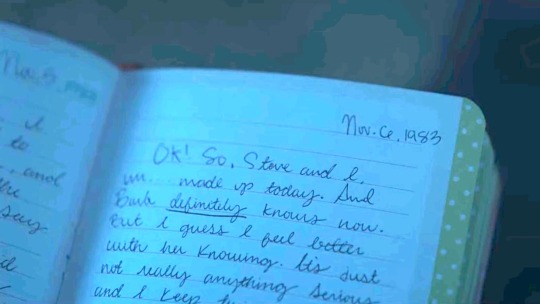 Nov. 5
l
to
and
the
say
Nov. 6, 1983
OK! So, Steve and I,
um... made up today. And
Barb definitely knows now.
But I guess I feel better
with her knowing. It's just
not really anything serious
and I keep